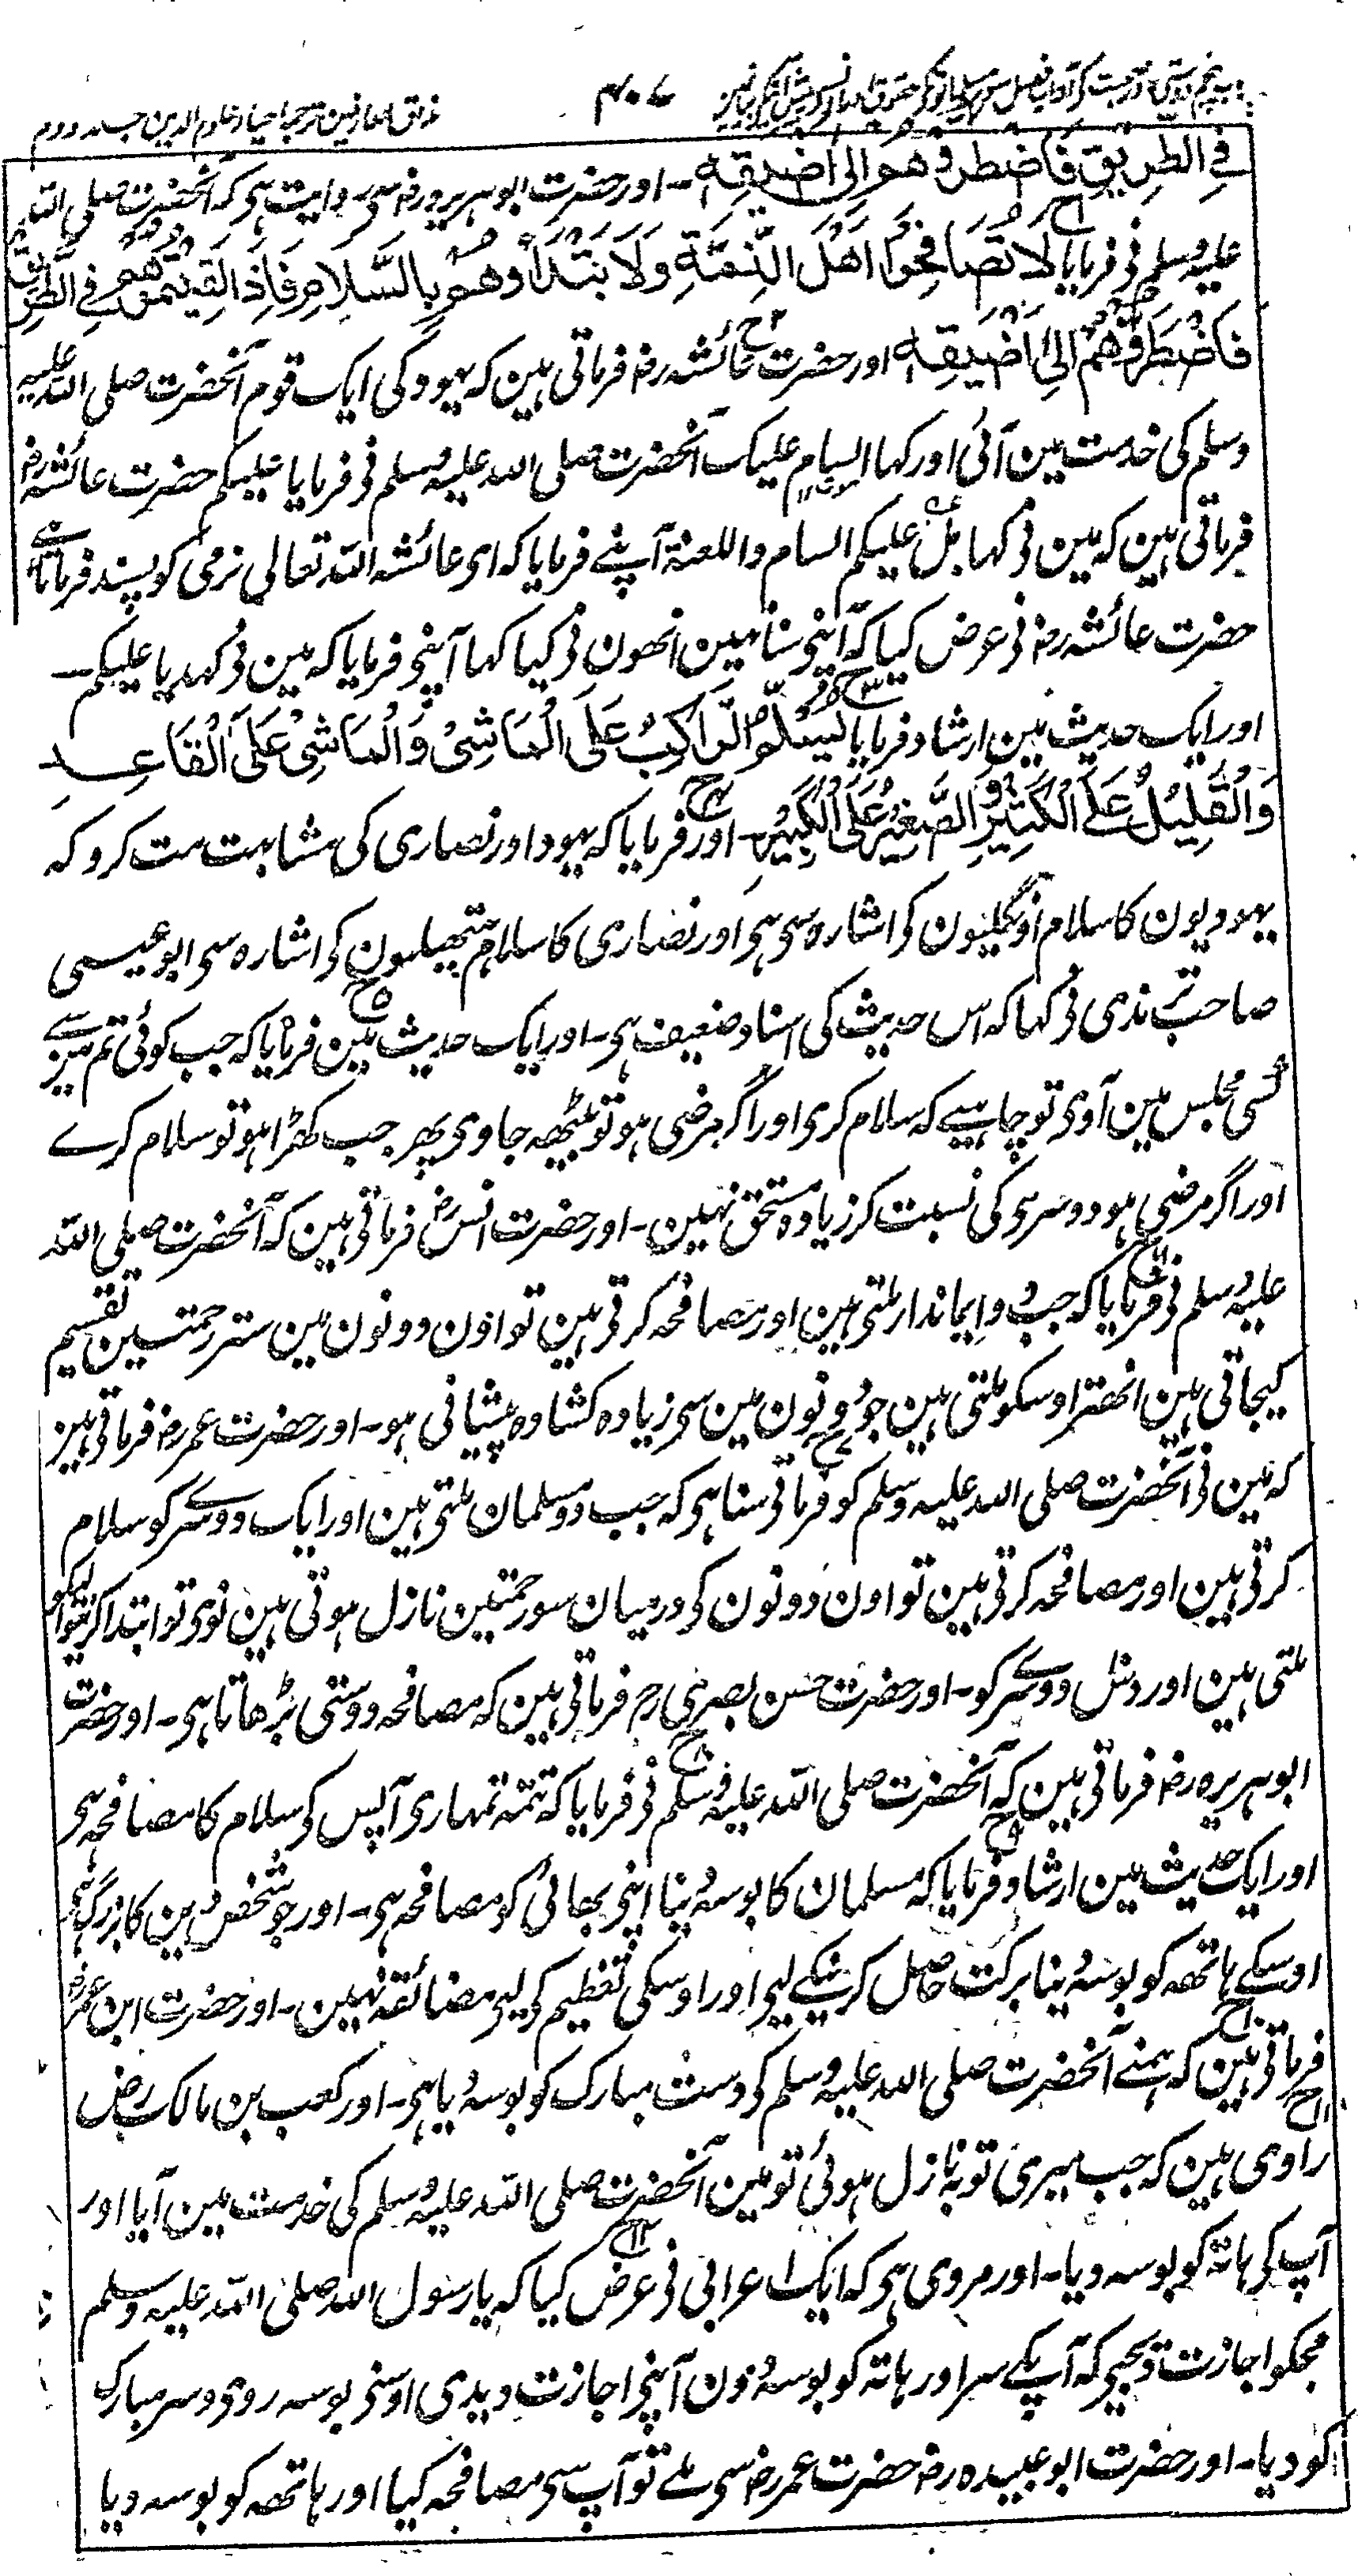 مذاق العارفین ترجمہ احیاء علوم الدین جلد دوم
۴۰۷
فِي الطَّرِيقِ فَاضْطَرُّوهُمْ إِلَى أَضْيَقِهِ ۔ اور حضرت ابوہریرہ رضہ سی روایت ہی کہ آنحضرت صلی اللہ
علیہ وسلم نی فرمایا لَا تُصَافِحُوا أَهْلَ الذِّمَّةِ وَلَا تَبْتَدِأُوهُمْ بِالسَّلَامِ فَإِذَا لَقِيتُمُوهُمْ فِي الطَّرِيقِ
فَاضْطَرُّوهُمْ إِلَى أَضْيَقِهِ اور حضرت عائشہ رضہ فرماتی ہین کہ یہود کی ایک قوم آنحضرت صلی اللہ علیہ
وسلم کی خدمت مین آئی اور کہا السام علیک آنحضرت صلی اللہ علیہ وسلم نی فرمایا علیکم حضرت عائشہ رضہ
فرماتی ہین کہ مین نی کہا بل علیکم السام واللعنۃ آپنے فرمایا کہ ای عائشہ اللہ تعالی نرمی کو پسند فرماتا ہے
حضرت عائشہ رضہ نی عرض کیا کہ آپنی سنا نہین انھون نی کیا کہا آپنی فرمایا کہ مین نی کہدیا علیکم ۔
اور ایک حدیث مین ارشاد فرمایا یُسَلِّمُ الرَّاكِبُ عَلَى الْمَاشِيْ وَالْمَاشِيْ عَلَى الْقَاعِدِ
وَالْقَلِيْلُ عَلَى الْكَثِيْرِ وَالصَّغِيْرُ عَلَى الْكَبِيْرِ ۔ اور فرمایا کہ یہود اور نصاری کی مشابہت مت کرو کہ
یہودیون کا سلام اونگلیون کی اشارہ سی ہی اور نصاری کا سلام ہتھیلیون کی اشارہ سی ابو عیسی
صاحب ترمذی نی کہا کہ اس حدیث کی اسناد ضعیف ہی ۔ اور ایک حدیث مین فرمایا کہ جب کوئی تم مین سے
کسی مجلس مین آوی تو چاہیے کہ سلام کری اور اگر مرضی ہو تو بیٹھہ جاوی پھر جب کھڑا ہو تو سلام کرے
اور اگر مرضی ہو دوسری کی نسبت کر زیادہ مستحق نہین ۔ اور حضرت انس رض فرماتی ہین کہ آنحضرت صلی اللہ
علیہ وسلم نی فرمایا کہ جب دو ایماندار ملتی ہین اور مصافحہ کرتی ہین تو اون دونون مین ستر رحمتین تقسیم
کیجاتی ہین انھتر اوسکو ملتی ہین جو دونون مین سی زیادہ کشادہ پیشانی ہو ۔ اور حضرت عمر رضہ فرماتی ہین
کہ مین نی آنحضرت صلی اللہ علیہ وسلم کو فرماتی سنا ہی کہ جب دو مسلمان ملتی ہین اور ایک دوسرے کو سلام
کرتی ہین اور مصافحہ کرتی ہین تو اون دونون کی درمیان سو رحمتین نازل ہوتی ہین نوی تو ابتدا کرنیوالیکو
ملتی ہین اور دس دوسرے کو ۔ اور حضرت حسن بصری رح فرماتی ہین کہ مصافحہ دوستی بڑھاتا ہی ۔ اور حضرت
ابو ہریرہ رضہ فرماتی ہین کہ آنحضرت صلی اللہ علیہ وسلم نی فرمایا کہ تتمہ تمہاری آپس کی سلام کا مصافحہ ہی
اور ایک حدیث مین ارشاد فرمایا کہ مسلمان کا بوسہ دینا اپنی بھائی کو مصافحہ ہی ۔ اور جو شخص دین کا بزرگ ہو
اوسکے ہاتھہ کو بوسہ دینا برکت حاصل کرنیکے لیی اور اوسکی تعظیم کی لیی مضائقہ نہین ۔ اور حضرت ابن عمر رضہ
فرماتی ہین کہ ہمنے آنحضرت صلی اللہ علیہ وسلم کی دست مبارک کو بوسہ دیا ہی ۔ اور کعب بن مالک رض
راوی ہین کہ جب میری توبہ نازل ہوئی تو مین آنحضرت صلی اللہ علیہ وسلم کی خدمت مین آیا اور
آپ کی ہاتہ کو بوسہ دیا ۔ اور مروی ہی کہ ایک اعرابی نی عرض کیا کہ یا رسول اللہ صلی اللہ علیہ وسلم
مجکو اجازت دیجیی کہ آپ کے سر اور ہاتہ کو بوسہ دون آپنی اجازت دیدی اوسنی بوسہ روی و سر مبارک
کو دیا ۔ اور حضرت ابو عبیدہ رضہ حضرت عمر رضہ سی ملے تو آپ سی مصافحہ کیا اور ہاتھہ کو بوسہ دیا